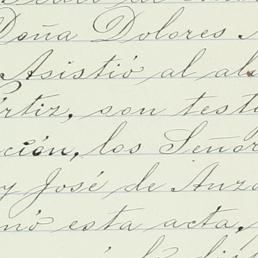 Doña Dolores
Asistió al
ortiz, son
ción, los Señor
y José de Anza
nó esta acta,